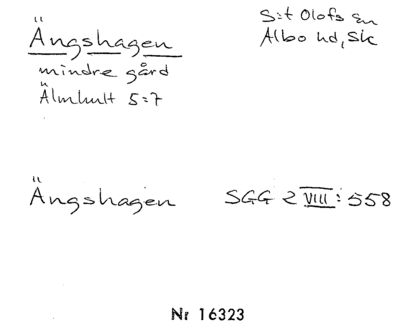 Ängshagen
mindre gård
Älmhult 5:7
S:t Olofs sn
Albo hd, Sk
Ängshagen SGG 2 VIII: 558
Nr 16323